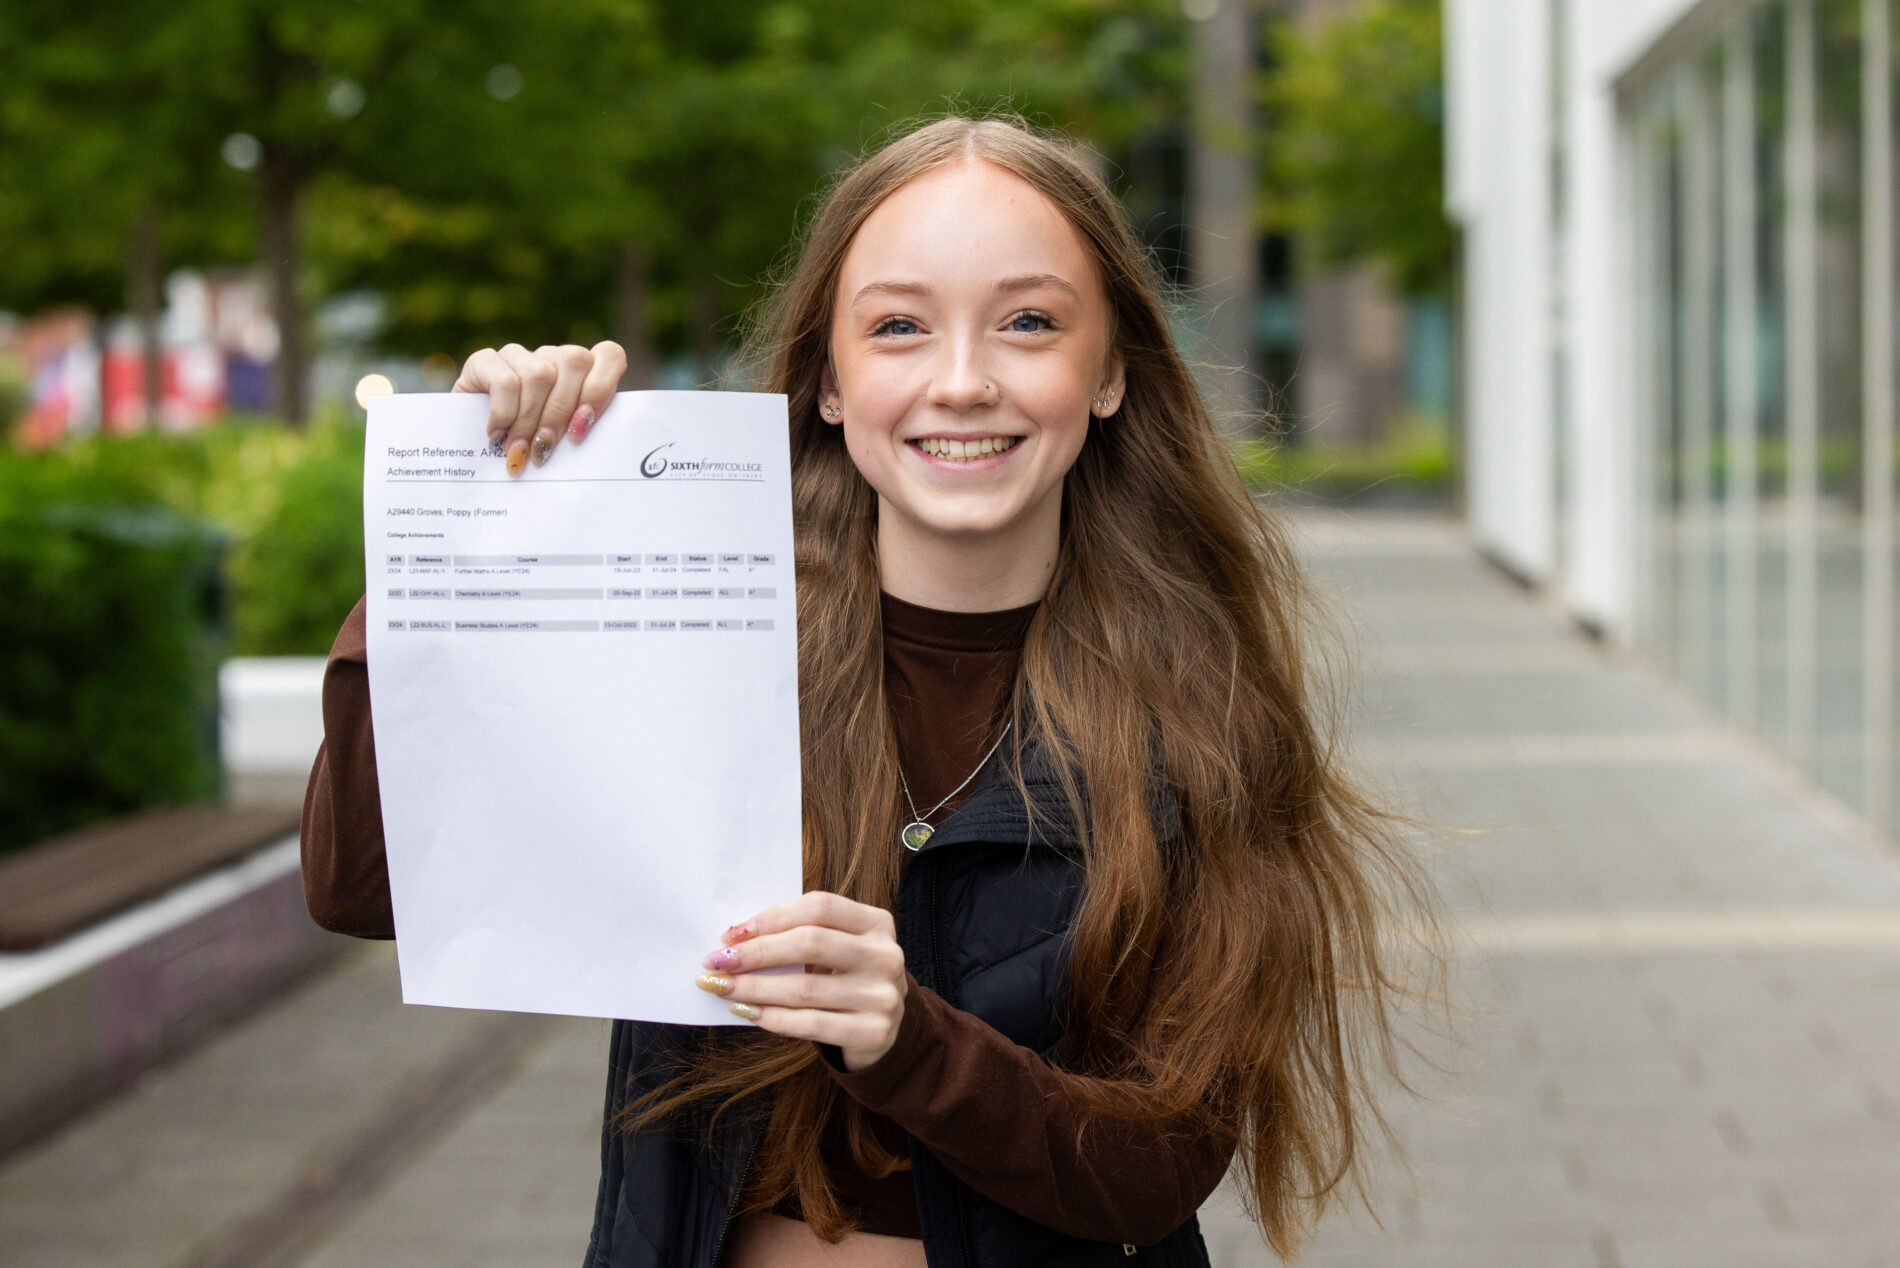 Report Reference: AH22
Achievement History
SIXTH form COLLEGE
CITY OF STOKE-ON-TRENT
A29440 Groves, Poppy (Former)
College Achievements
AYR Reference Course Start End Status Level Grade
23/24 L23-MAF-AL-Y Further Maths A Level (YE24) 19-Jun-23 31-Jul-24 Completed FAL A*
22/23 L22-CHY-AL-L Chemistry A Level (YE24) 05-Sep-22 31-Jul-24 Completed ALL A*
23/24 L22-BUS-AL-L Business Studies A Level (YE24) 13-Oct-2022 31-Jul-24 Completed ALL A*